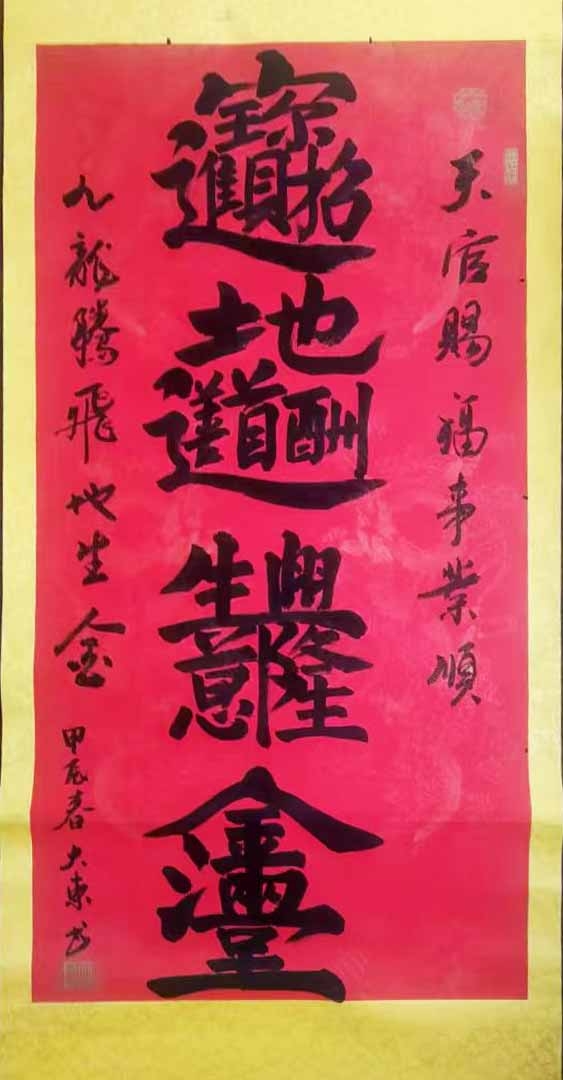 天官賜福事業順
招財進寶
地道酬善
生意興隆
金玉滿堂
九龍騰飛地生金
甲辰春大東书